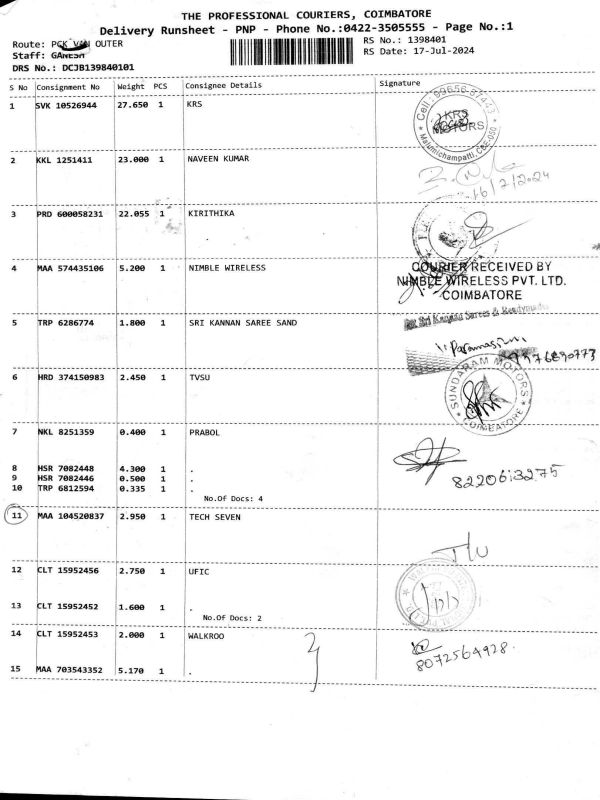 THE PROFESSIONAL COURIERS, COIMBATORE
Delivery Runsheet - PNP - Phone No.:0422-3505555 - Page No.:1
Route: PCK VAN OUTER RS No.: 1398401
Staff: GANESH RS Date: 17-Jul-2024
DRS No.: DCJB139840101
S No Consignment No Weight PCS Consignee Details Signature
1 SVK 10526944 27.650 1 KRS
KRS
MOTORS
Malumichampatti,
2 KKL 1251411 23.000 1 NAVEEN KUMAR
16/7/2024
3 PRD 600058231 22.055 1 KIRITHIKA
4 MAA 574435106 5.200 1 NIMBLE WIRELESS
COURIER RECEIVED BY
NIMBLE WIRELESS PVT. LTD.
COIMBATORE
5 TRP 6286774 1.800 1 SRI KANNAN SAREE SAND
Sri Kannan Sarees & Readymades
6 HRD 374150983 2.450 1 TVSU
SUNDARAM MOTORS
COIMBATORE
7 NKL 8251359 0.400 1 PRABOL
8 HSR 7082448 4.300 1 .
9 HSR 7082446 0.500 1 .
10 TRP 6812594 0.335 1 .
No.Of Docs: 4
8220613275
11 MAA 104520837 2.950 1 TECH SEVEN
12 CLT 15952456 2.750 1 UFIC
13 CLT 15952452 1.600 1 .
No.Of Docs: 2
14 CLT 15952453 2.000 1 WALKROO
8072564928
15 MAA 703543352 5.170 1 .